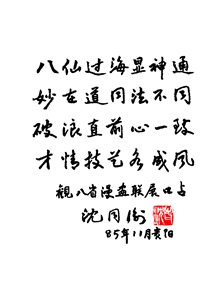 八仙过海显神通
妙在道同法不同
破浪直前心一致
才情技艺各成风
观八省漫画联展口占
沈同衡
85年11月贵阳